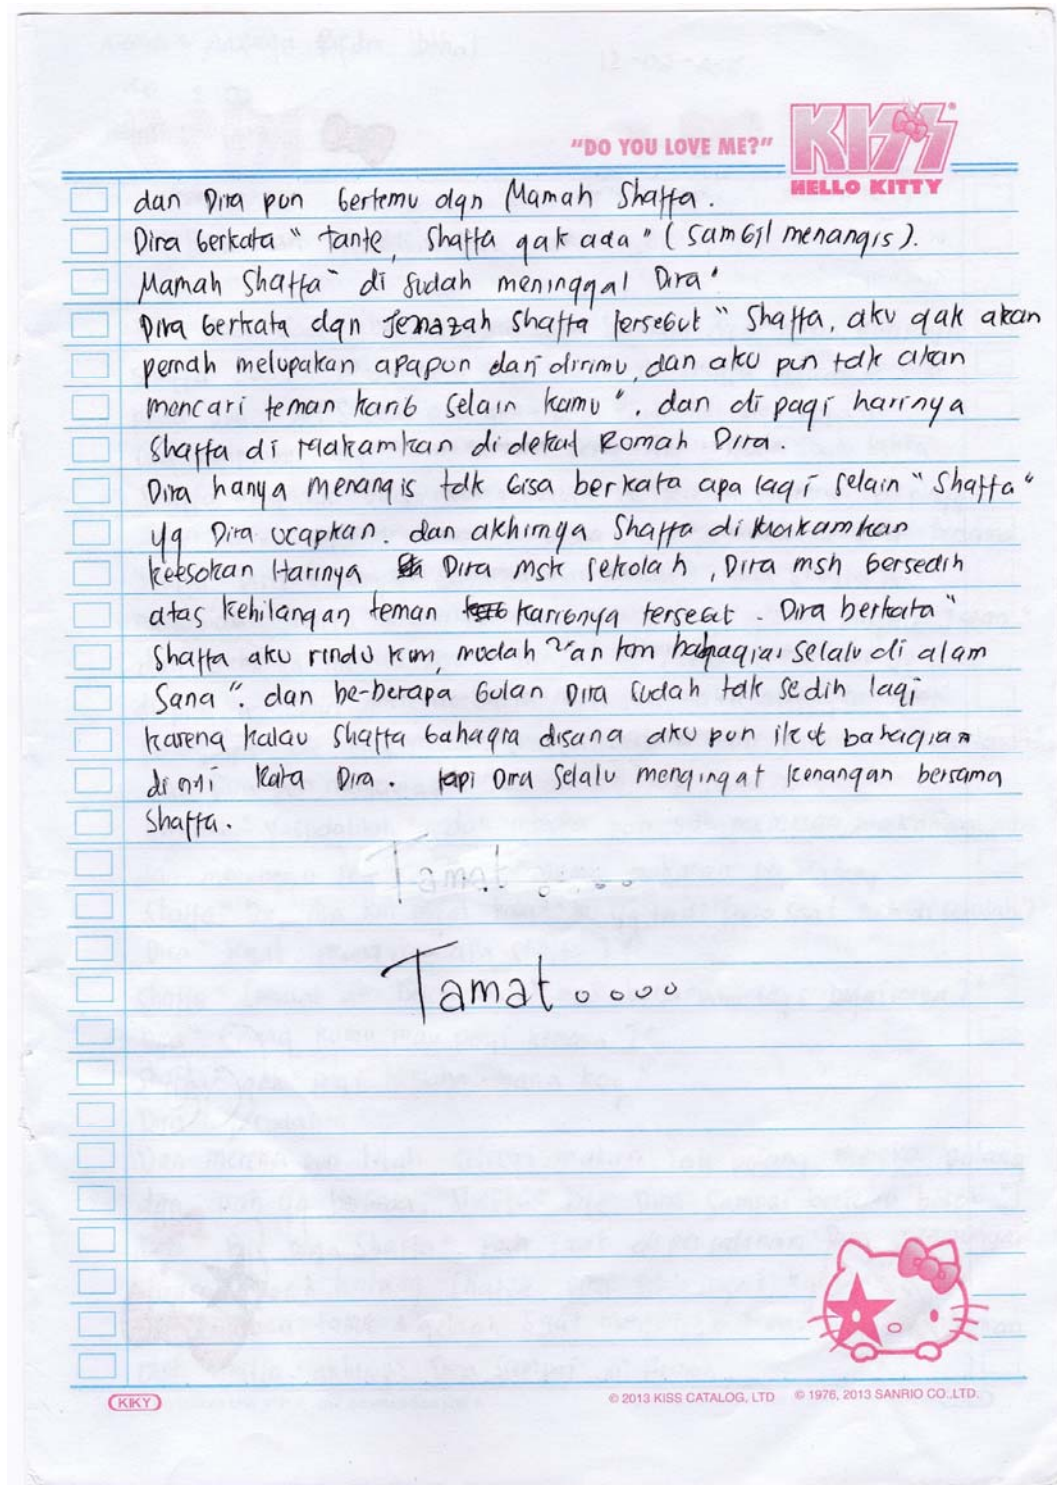 "DO YOU LOVE ME?"
KISS
HELLO KITTY
dan Dira pun bertemu dgn Mamah Shaffa.
Dira berkata " tante, Shaffa gak ada " ( sambil menangis ).
Mamah Shaffa " di sudah meninggal Dira "
Dira berkata dgn Jenazah Shaffa tersebut " Shaffa, aku gak akan
pernah melupakan apapun dari dirimu, dan aku pun tdk akan
mencari teman karib selain kamu ". dan di pagi harinya
Shaffa di makamkan di dekat Romah Dira.
Dira hanya menangis tdk bisa berkata apa lagi selain " Shaffa "
yg Dira ucapkan. dan akhirnya Shaffa di makamkan
keesokan Harinya Dira msk sekolah, Dira msh bersedih
atas kehilangan teman karibnya tersebut. Dira berkata "
Shaffa aku rindu kmu, mudah an kmu bahagia selalu di alam
Sana ". dan be-berapa bulan Dira sudah tdk sedih lagi
karena kalau Shaffa bahagia disana aku pun ikut bahagia
disini kata Dira. tapi Dira selalu mengingat kenangan bersama
Shaffa.
Tamat ....
Tamat....
KIKY
© 2013 KISS CATALOG, LTD © 1976, 2013 SANRIO CO.,LTD.